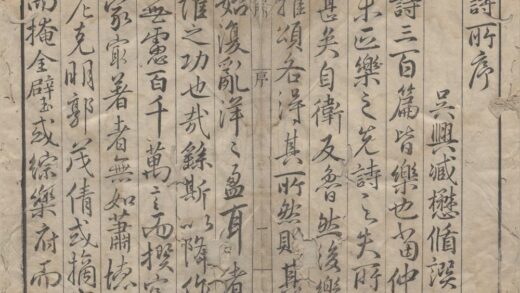 詩所序
吳興臧懋循譔
詩三百篇皆樂也當仲
未正樂之先詩之失所
甚矣自衛反魯然後樂
雅頌各得其所然則其
序
一
始復亂洋〻盈耳者
誰之功也哉繇斯以降作
無慮百千萬言而撰
家最著者無如蕭
左克明郭茂倩或摘
而掩全璧或綜樂府而